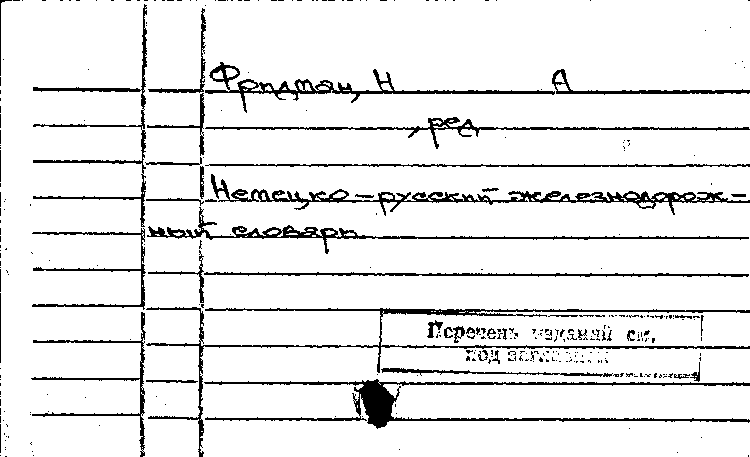 Фридман, Н А
, ред
Немецко-русский железнодорож-
ный словарь
Перечень изданий см.
под заглавием